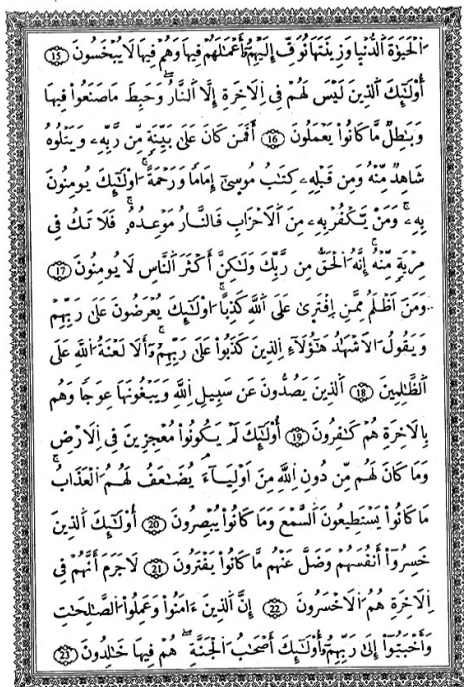 اَ۬لْحَيَوٰةَ اَ۬لدُّنْيَا وَزِينَتَهَا نُوَفِّ إِلَيْهِمُۥٓ أَعْمَٰلَهُمْ فِيهَا وَهُمْ فِيهَا لَا يُبْخَسُونَ 15
أُوْلَٰٓئِكَ اَ۬لذِينَ لَيْسَ لَهُمْ فِي اِ۬لَاخِرَةِ إِلَّا اَ۬لنَّارُ وَحَبِطَ مَا صَنَعُواْ فِيهَا
وَبَٰطِلٞ مَّا كَانُواْ يَعْمَلُونَ 16 أَفَمَن كَانَ عَلَىٰ بَيِّنَةٖ مِّن رَّبِّهِۦ وَيَتْلُوهُ
شَاهِدٞ مِّنْهُ وَمِن قَبْلِهِۦ كِتَٰبُ مُوسۭيٰٓ إِمَاماٗ وَرَحْمَةًۖ ا۟وْلَٰٓئِكَ يُومِنُونَ
بِهِۦۖ وَمَنْ يَّكْفُرْ بِهِۦ مِنَ اَ۬لَاحْزَابِ فَالنَّارُ مَوْعِدُهُۥۖ فَلَا تَكُ فِي
مِرْيَةٖ مِّنْهُۖ إِنَّهُ اُ۬لْحَقُّ مِن رَّبِّكَ وَلَٰكِنَّ أَكْثَرَ اَ۬لنَّاسِ لَا يُومِنُونَ 17
وَمَنَ اَظْلَمُ مِمَّنِ اِ۪فْتَرۭيٰ عَلَى اَ۬للَّهِ كَذِباًۖ ا۟وْلَٰٓئِكَ يُعْرَضُونَ عَلَىٰ رَبِّهِمْ
وَيَقُولُ اُ۬لَاشْهَٰدُ هَٰٓؤُلَآءِ اِ۬لذِينَ كَذَبُواْ عَلَىٰ رَبِّهِمُۥٓۖ أَلَا لَعْنَةُ اُ۬للَّهِ عَلَى
اَ۬لظَّٰلِمِينَ 18 اَ۬لذِينَ يَصُدُّونَ عَن سَبِيلِ اِ۬للَّهِ وَيَبْغُونَهَا عِوَجاٗ وَهُم
بِالَاخِرَةِ هُمْ كَٰفِرُونَ 19 أُوْلَٰٓئِكَ لَمْ يَكُونُواْ مُعْجِزِينَ فِي اِ۬لَارْضِ
وَمَا كَانَ لَهُم مِّن دُونِ اِ۬للَّهِ مِنَ اَوْلِيَآءَۖ يُضَٰعَفُ لَهُمُ اُ۬لْعَذَابُۖ
مَا كَانُواْ يَسْتَطِيعُونَ اَ۬لسَّمْعَ وَمَا كَانُواْ يُبْصِرُونَ 20 أُوْلَٰٓئِكَ اَ۬لذِينَ
خَسِرُوٓاْ أَنفُسَهُمْ وَضَلَّ عَنْهُم مَّا كَانُواْ يَفْتَرُونَ 21 لَا جَرَمَ أَنَّهُمْ فِي
اِ۬لَاخِرَةِ هُمُ اُ۬لَاخْسَرُونَ 22 إِنَّ اَ۬لذِينَ ءَامَنُواْ وَعَمِلُواْ اُ۬لصَّٰلِحَٰتِ
وَأَخْبَتُوٓاْ إِلَىٰ رَبِّهِمُۥٓ أُوْلَٰٓئِكَ أَصْحَٰبُ اُ۬لْجَنَّةِۖ هُمْ فِيهَا خَٰلِدُونَ 23